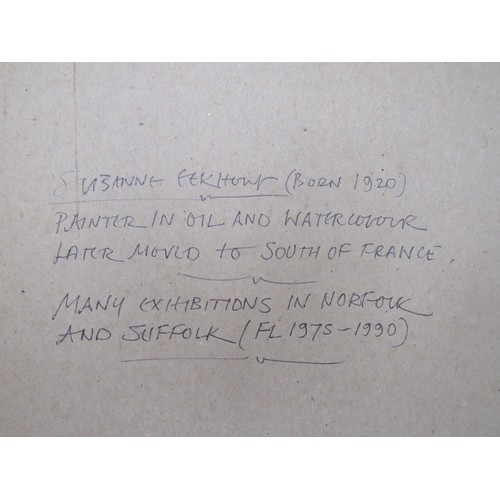 SUZANNE EEKHOUT (BORN 1920)
PAINTER IN OIL AND WATERCOLOUR
LATER MOVED TO SOUTH OF FRANCE.
MANY EXHIBITIONS IN NORFOLK
AND SUFFOLK (FL 1975-1990)